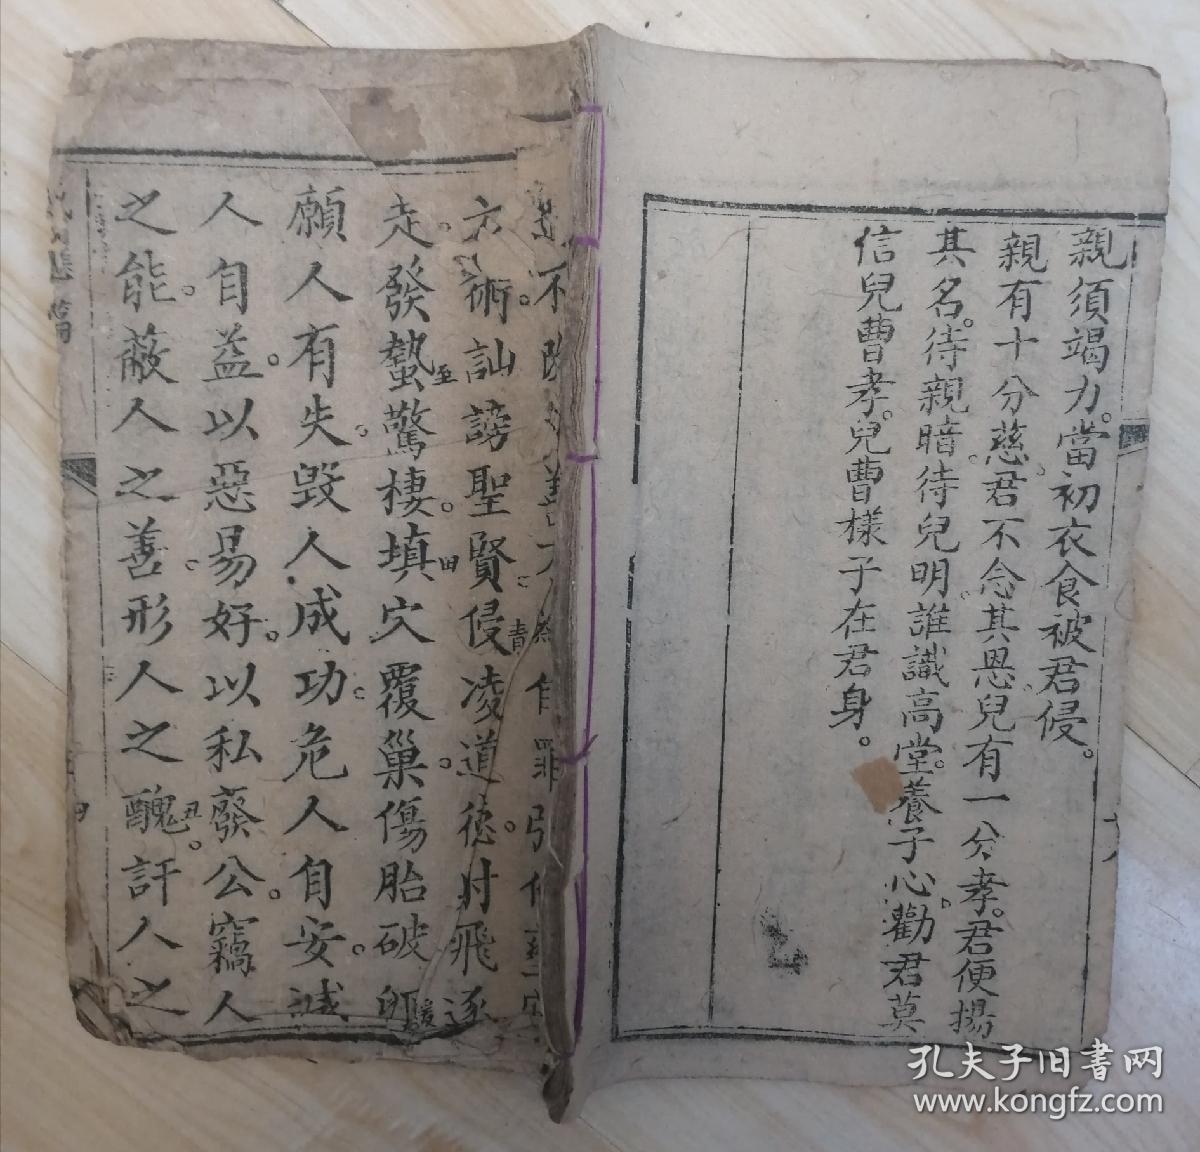 親須竭力。當初衣食被君侵。
親有十分慈。君不念其恩。兒有一分孝。君便揚
其名。待親暗。待兒明。誰識高堂養子心。勸君莫
信兒曹孝。兒曹樣子在君身。
六
術。訕謗聖賢。侵凌道德。射飛逐
走。發蟄驚棲。填穴覆巢。傷胎破卵。
願人有失。毀人成功。危人自安。減
人自益。以惡易好。以私廢公。竊人
之能。蔽人之善。形人之醜。訐人之
至
田
青
丑
篇
孔夫子旧书网
www.kongfz.com